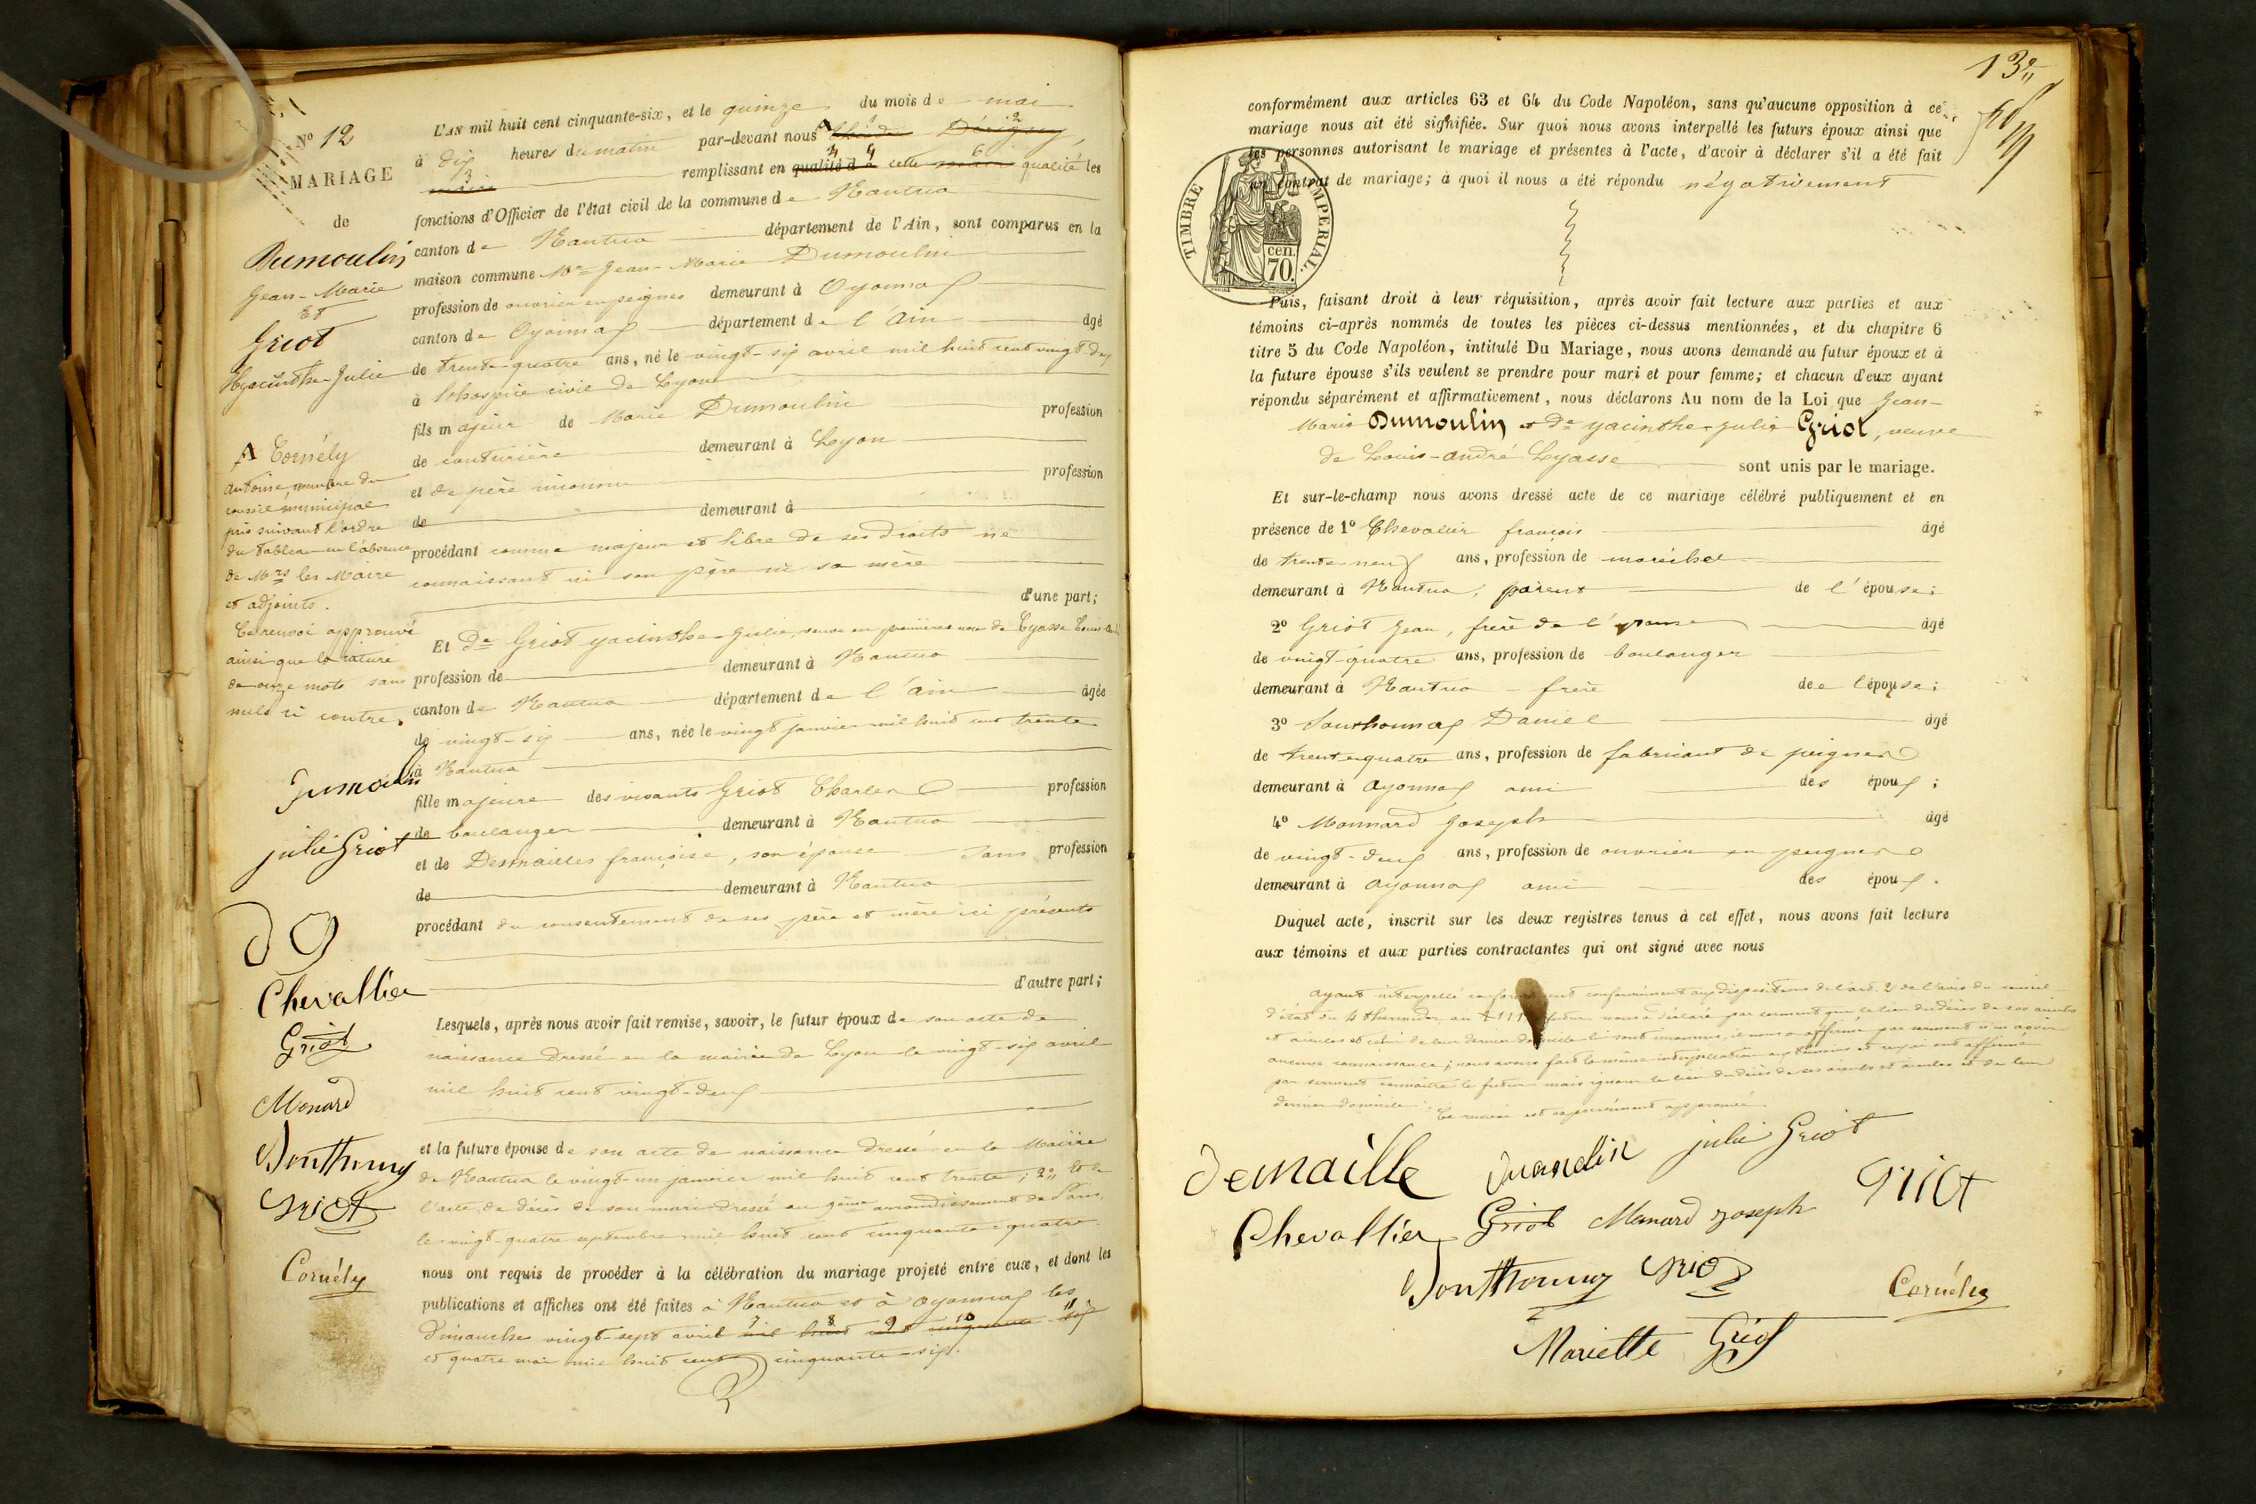 N° 12
MARIAGE
de
Dumoulin
Jean-Marie
Et
Griot
Hyacinthe-Julie
A Cornély
Antoine, membre du
conseil municipal
pris suivant l'ordre
du tableau en l'absence
de Mrs les Maire
et adjoints.
Ce renvoi approuvé
ainsi que la rature
de onze mots sans
nuls ci contre.
Dumoulin
julie Griot
D G
Chevallier
Griot
Monard
Sonthonnax
Griot
Cornély
L'AN mil huit cent cinquante-six, et le quinze du mois de mai
à dix heures du matin par-devant nous A
remplissant en qualité de cette qualité les
fonctions d'Officier de l'état civil de la commune de Nantua
canton de Nantua département de l'Ain, sont comparus en la
maison commune Mr Jean-Marie Dumoulin
profession de ouvrier en peignes demeurant à Oyonnax
canton de Oyonnax département de l'Ain âgé
de trente-quatre ans, né le vingt-six avril mil huit cent vingt-deux
à l'hospice civil de Lyon
fils majeur de Marie Dumoulin profession
de couturière demeurant à Lyon
et de père inconnu profession
de demeurant à
procédant comme majeur et libre de ses droits ne
connaissant ni son père ni sa mère
d'une part;
Et De Griot yacinthe-Julie, veuve en premières noces de Lyasse Louis
profession de demeurant à Nantua
canton de Nantua département de l'ain âgée
de vingt-six ans, née le vingt janvier mil huit cent trente
à Nantua
fille majeure des vivants Griot Charles profession
de boulanger demeurant à Nantua
et de Desmailles françoise, son épouse sans profession
de demeurant à Nantua
procédant du consentement de ses père et mère ici présents
d'autre part;
Lesquels, après nous avoir fait remise, savoir, le futur époux de son acte de
naissance dressé en la mairie de Lyon le vingt-six avril
mil huit cent vingt-deux
et la future épouse de son acte de naissance dressé en la Mairie
de Nantua le vingt-un janvier mil huit cent trente; 2° et de
l'acte de décès de son mari dressé au 9ème arrondissement de Paris
le vingt-quatre septembre mil huit cent cinquante-quatre.
nous ont requis de procéder à la célébration du mariage projeté entre eux, et dont les
publications et affiches ont été faites à Nantua et à oyonnax les
Dimanches vingt-sept avril mil huit cent cinquante six
et quatre mai mil huit cent cinquante-six.
13
conformément aux articles 63 et 64 du Code Napoléon, sans qu'aucune opposition à ce
mariage nous ait été signifiée. Sur quoi nous avons interpellé les futurs époux ainsi que
les personnes autorisant le mariage et présentes à l'acte, d'avoir à déclarer s'il a été fait
un contrat de mariage; à quoi il nous a été répondu négativement
TIMBRE IMPÉRIAL.
cen.
70.
Puis, faisant droit à leur réquisition, après avoir fait lecture aux parties et aux
témoins ci-après nommés de toutes les pièces ci-dessus mentionnées, et du chapitre 6
titre 5 du Code Napoléon, intitulé Du Mariage, nous avons demandé au futur époux et à
la future épouse s'ils veulent se prendre pour mari et pour femme; et chacun d'eux ayant
répondu séparément et affirmativement, nous déclarons Au nom de la Loi que Jean-
Marie Dumoulin et De yacinthe-julie Griot, veuve
de Louis-andré Lyasse sont unis par le mariage.
Et sur-le-champ nous avons dressé acte de ce mariage célébré publiquement et en
présence de 1° Chevalier françois âgé
de trente-neuf ans, profession de maréchal
demeurant à Nantua, parent de l'épouse;
2° Griot Jean, frère de l'épouse âgé
de vingt-quatre ans, profession de boulanger
demeurant à Nantua - frère de l'épouse;
3° Sonthonnax Daniel âgé
de trente-quatre ans, profession de fabricant de peignes
demeurant à oyonnax ami des époux;
4° Monnard Joseph âgé
de vingt-deux ans, profession de ouvrier en peignes
demeurant à oyonnax ami des époux.
Duquel acte, inscrit sur les deux registres tenus à cet effet, nous avons fait lecture
aux témoins et aux parties contractantes qui ont signé avec nous
ayant interpellé conformément aux dispositions de l'art. 2 de l'avis du conseil
d'état du 4 thermidor an futur nous a déclaré par serment que le lieu du décès de ses aïeuls
et aïeules et celui de leur dernier domicile lui sont inconnus, a affirmé par serment n'en avoir
aucune connaissance; nous avons fait la même interpellation aux témoins ont affirmé
par serment connaitre le futur mais ignorer le lieu du décès de ses aïeuls et aïeules et de leur
dernier domicile. Ce renvoi est expressément approuvé.
Demaille Dumoulin julie Griot
Chevallier Griot Monard Joseph Griot
Sonthonnax Griot Cornély
Mariette Griot